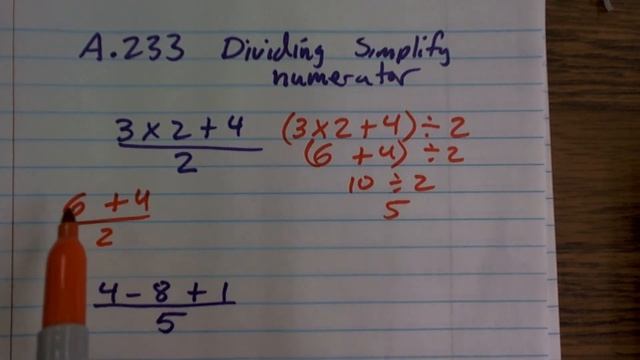 A.233 Dividing Simplify
numerator
3 x 2 + 4
2
(3 x 2 + 4) ÷ 2
(6 + 4) ÷ 2
10 ÷ 2
5
6 + 4
2
4 - 8 + 1
5